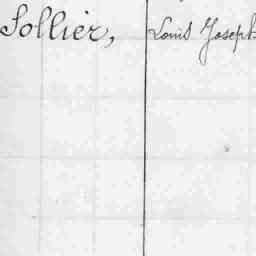 Sollier, Louis Joseph